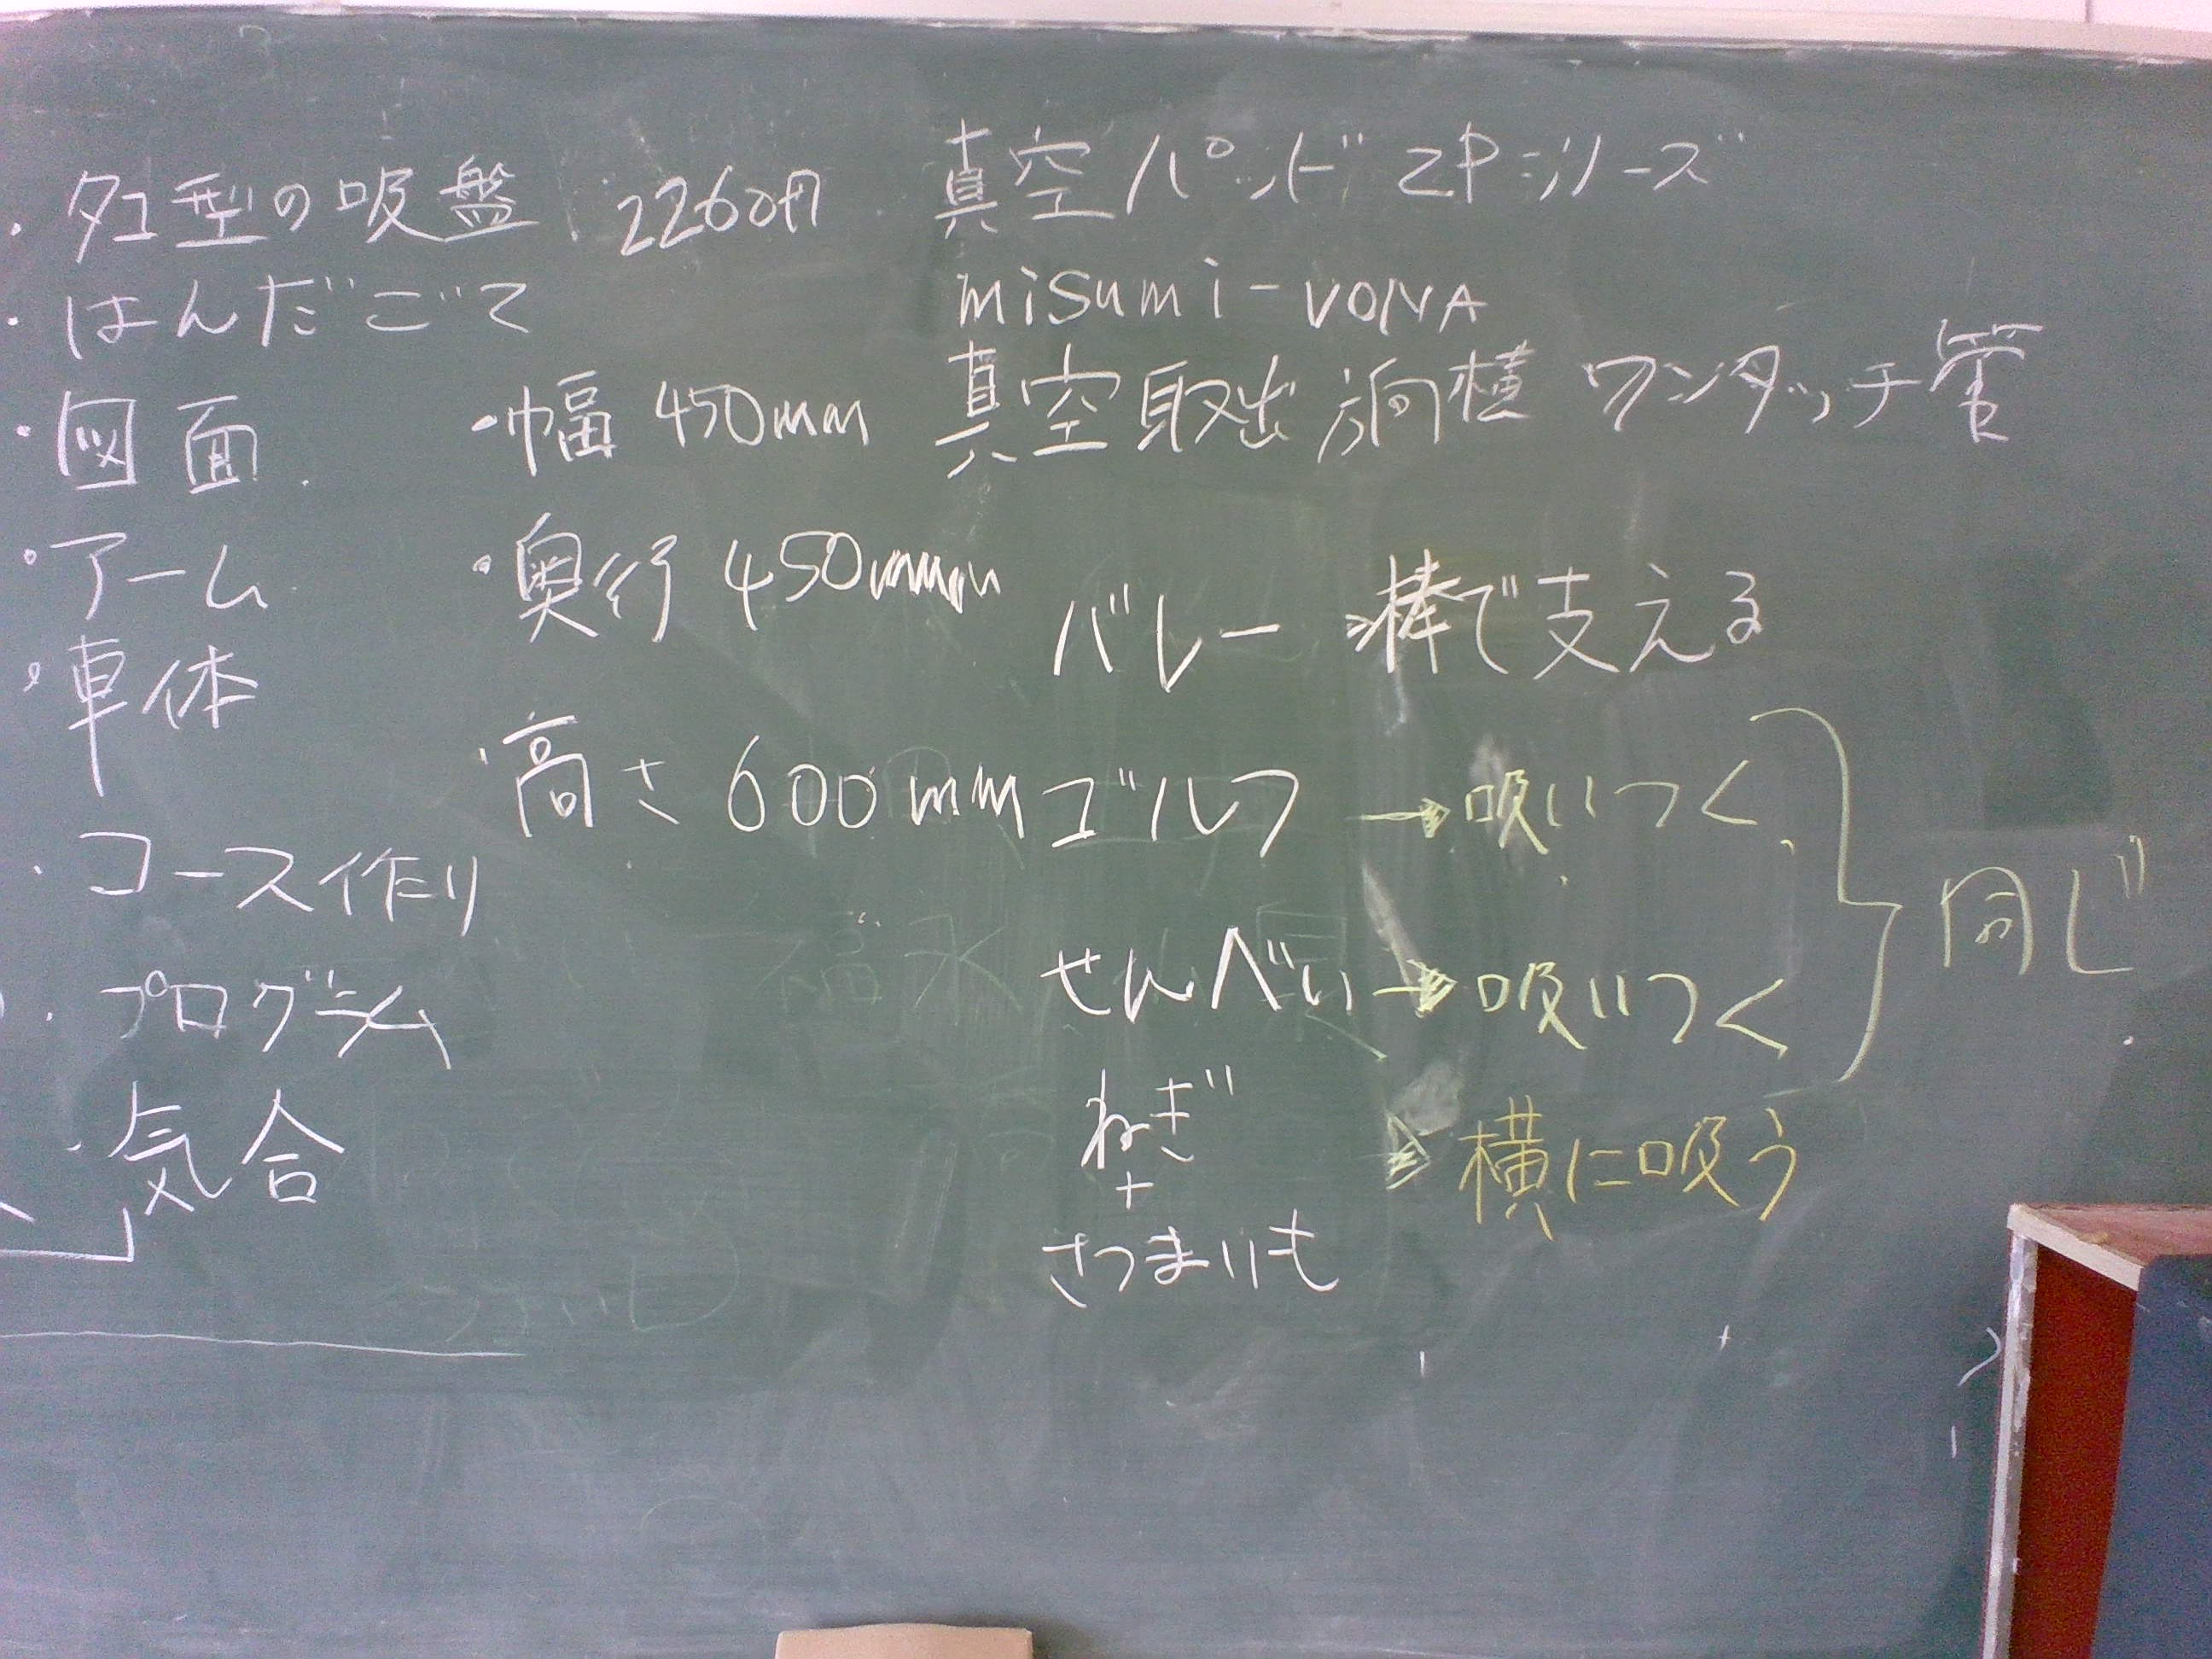 ・タコ型の吸盤 2260円
・はんだごて
・図面
・アーム
・車体
・コース作り
・プログラム
・気合
・幅 450mm
・奥行 450mm
・高さ 600mm
真空パッド ZPシリーズ
misumi-VONA
真空取出方向横 ワンタッチ管
バレー →棒で支える
ゴルフ →吸いつく
せんべい →吸いつく
同じ
ねぎ
+
さつまいも
→横に吸う